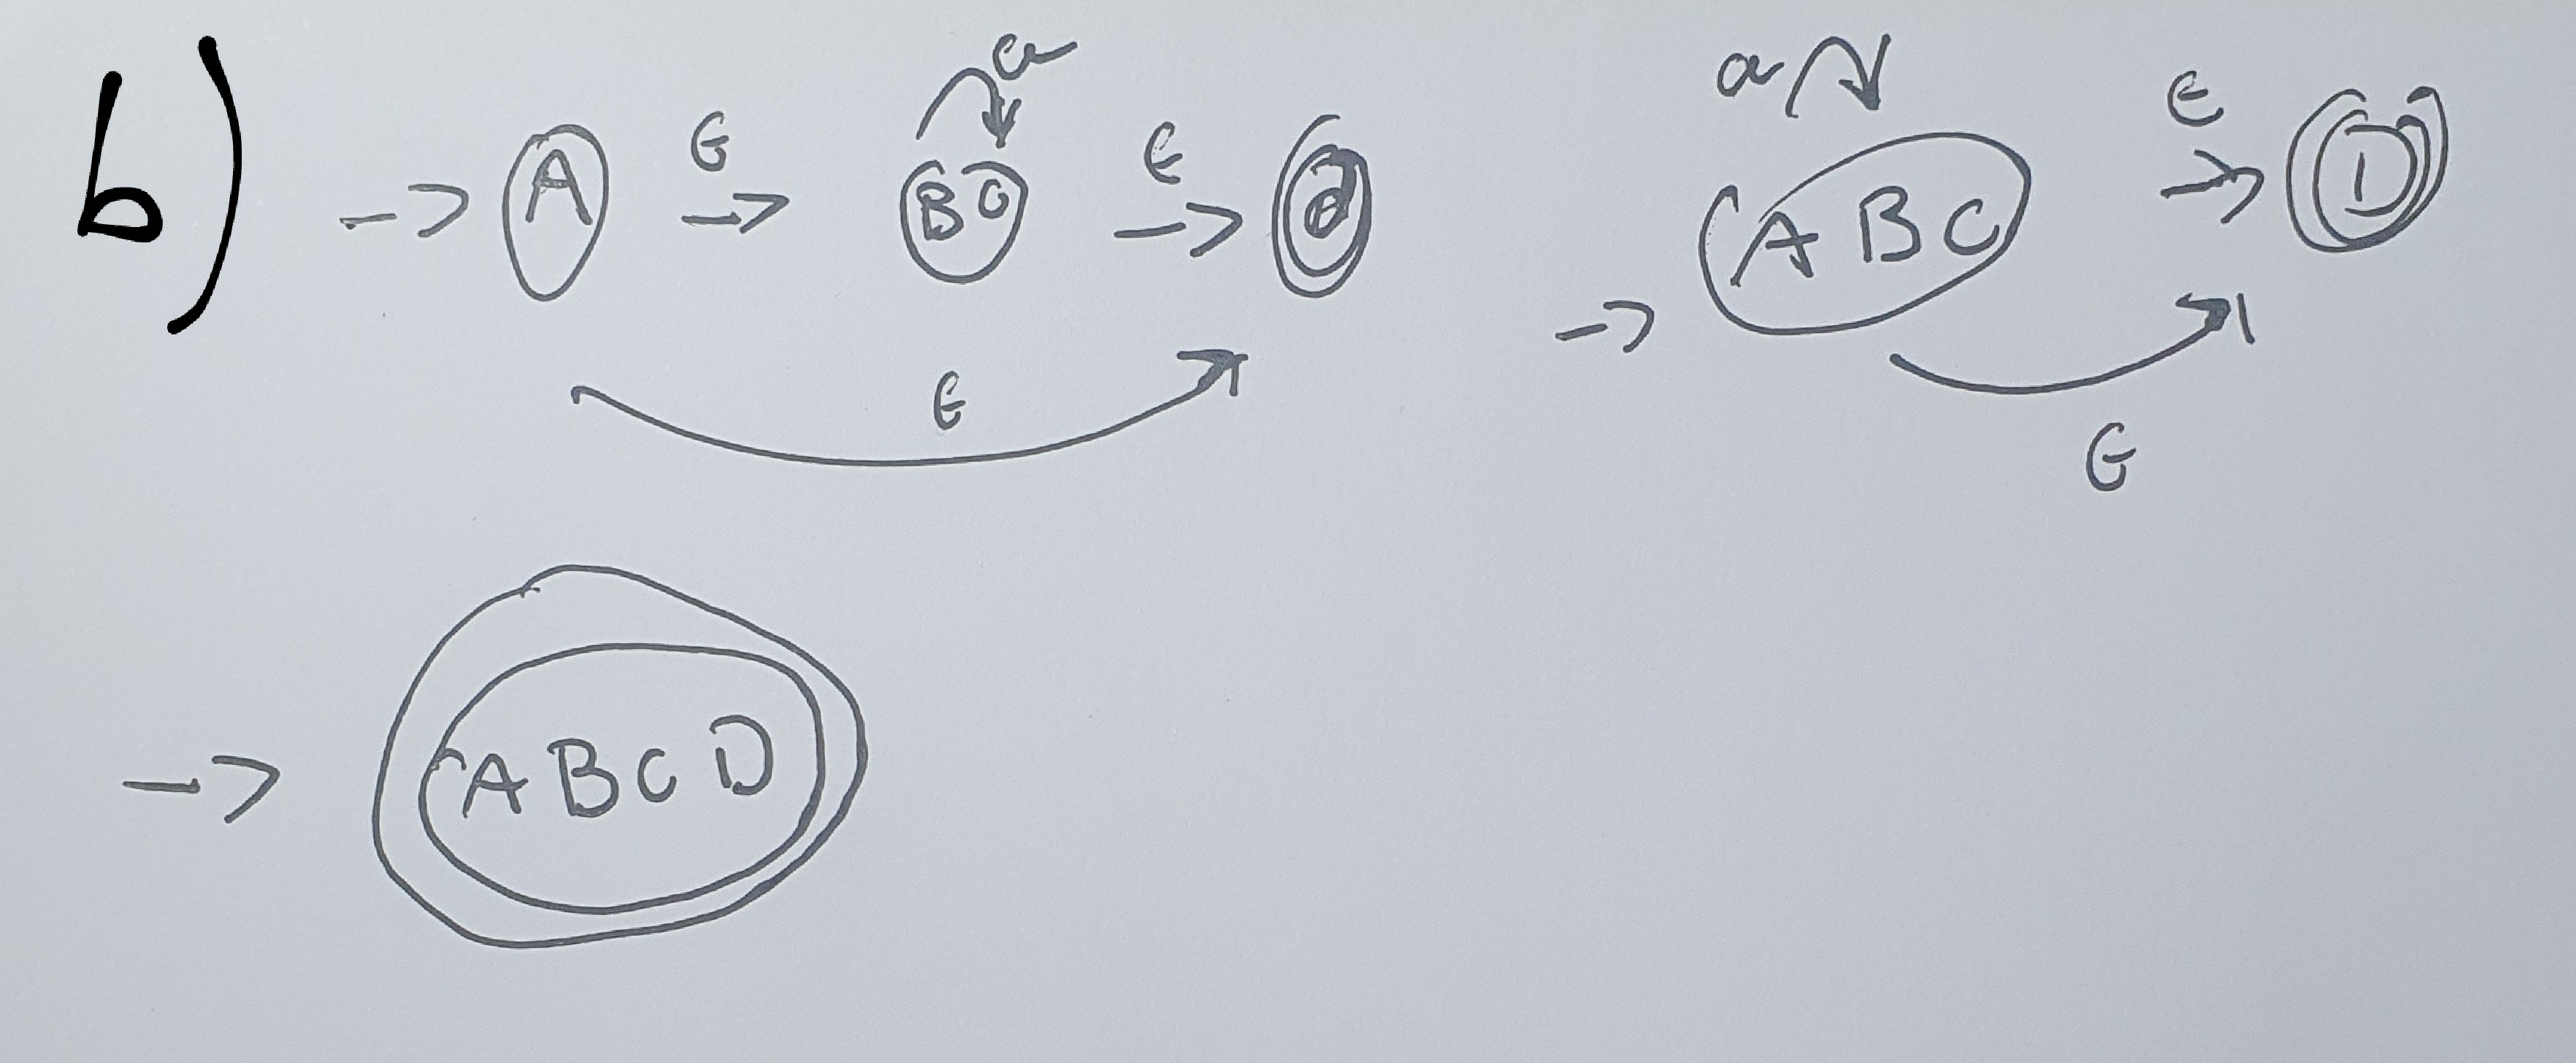 b) -> A ϵ -> BC a ϵ -> D ϵ
-> ABC a ϵ -> D ϵ
-> ABCD